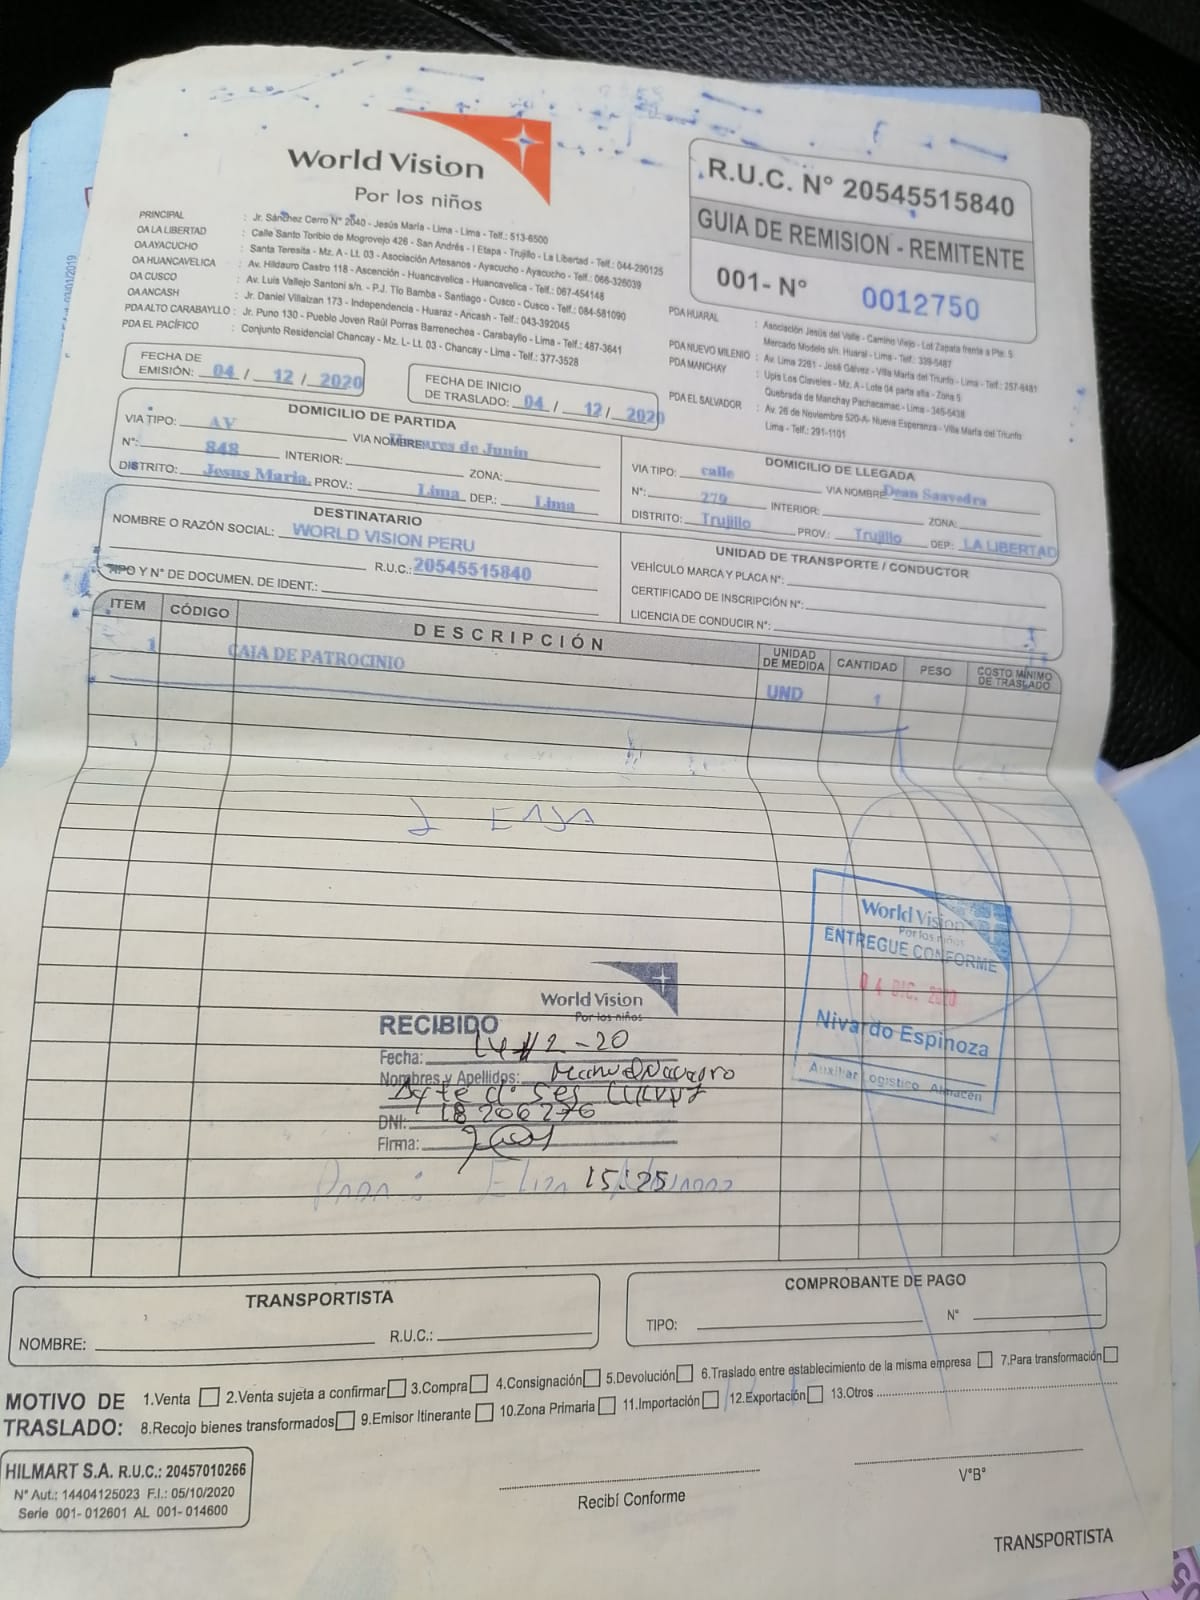 World Vision
Por los niños
R.U.C. N° 20545515840
GUIA DE REMISION - REMITENTE
001- N° 0012750
PRINCIPAL : Jr. Sánchez Cerro N° 2040 - Jesús María - Lima - Lima - Telf.: 513-6500
OA LA LIBERTAD : Calle Santo Toribio de Mogrovejo 426 - San Andrés - I Etapa - Trujillo - La Libertad - Telf.: 044-290125
OA AYACUCHO : Santa Teresita - Mz. A - Lt. 03 - Asociación Artesanos - Ayacucho - Ayacucho - Telf.: 066-326039
OA HUANCAVELICA : Av. Hildauro Castro 118 - Ascención - Huancavelica - Huancavelica - Telf.: 067-454148
OA CUSCO : Av. Luis Vallejo Santoni s/n. - P.J. Tío Bamba - Santiago - Cusco - Cusco - Telf.: 084-581090
OA ANCASH : Jr. Daniel Villaizan 173 - Independencia - Huaraz - Ancash - Telf.: 043-392045
PDA ALTO CARABAYLLO : Jr. Puno 130 - Pueblo Joven Raúl Porras Barrenechea - Carabayllo - Lima - Telf.: 487-3641
PDA EL PACÍFICO : Conjunto Residencial Chancay - Mz. L- Lt. 03 - Chancay - Lima - Telf.: 377-3528
PDA HUARAL : Asociación Jesús del Valle - Camino Viejo - Lot Zapata frente a Pte. 5
Mercado Modelo s/n. Huaral - Lima - Telf.: 339-5487
PDA NUEVO MILENIO : Av. Lima 2261 - José Gálvez - Villa María del Triunfo - Lima - Telf.: 257-6481
PDA MANCHAY : Upis Los Claveles - Mz. A - Lote 04 parte alta - Zona 5
Quebrada de Manchay Pachacamac - Lima - 345-5438
PDA EL SALVADOR : Av. 26 de Noviembre 520-A- Nueva Esperanza - Villa María del Triunfo
Lima - Telf.: 291-1101
FECHA DE EMISIÓN: 04 / 12 / 2020
FECHA DE INICIO DE TRASLADO: 04 / 12 / 2020
DOMICILIO DE PARTIDA
VIA TIPO: AV VIA NOMBRE: Husares de Junin
N°: 848 INTERIOR: ZONA:
DISTRITO: Jesus Maria PROV.: Lima DEP.: Lima
DOMICILIO DE LLEGADA
VIA TIPO: calle VIA NOMBRE Dean Saavedra
N°: 279 INTERIOR: ZONA:
DISTRITO: Trujillo PROV.: Trujillo DEP.: LA LIBERTAD
DESTINATARIO
NOMBRE O RAZÓN SOCIAL: WORLD VISION PERU
R.U.C.: 20545515840
TIPO Y N° DE DOCUMEN. DE IDENT.:
UNIDAD DE TRANSPORTE / CONDUCTOR
VEHÍCULO MARCA Y PLACA N°:
CERTIFICADO DE INSCRIPCIÓN N°:
LICENCIA DE CONDUCIR N°:
ITEM CÓDIGO DESCRIPCIÓN UNIDAD DE MEDIDA CANTIDAD PESO COSTO MÍNIMO DE TRASLADO
1 CAJA DE PATROCINIO UND 1
1 CAJA
World Vision
Por los niños
ENTREGUE CONFORME
04 DIC. 2020
Nivardo Espinoza
Auxiliar Logístico Almacén
World Vision
Por los niños
RECIBIDO
Fecha: 14-12-20
Nombres y Apellidos: Manuel Navarro
DNI: 18206276
Firma:
Para : 15:25
TRANSPORTISTA
NOMBRE: R.U.C.:
COMPROBANTE DE PAGO
TIPO: N°
MOTIVO DE TRASLADO: 1.Venta 2.Venta sujeta a confirmar 3.Compra 4.Consignación 5.Devolución 6.Traslado entre establecimiento de la misma empresa 7.Para transformación
8.Recojo bienes transformados 9.Emisor Itinerante 10.Zona Primaria 11.Importación 12.Exportación 13.Otros
HILMART S.A. R.U.C.: 20457010266
N° Aut.: 14404125023 F.I.: 05/10/2020
Serie 001- 012601 AL 001- 014600
Recibí Conforme
V°B°
TRANSPORTISTA